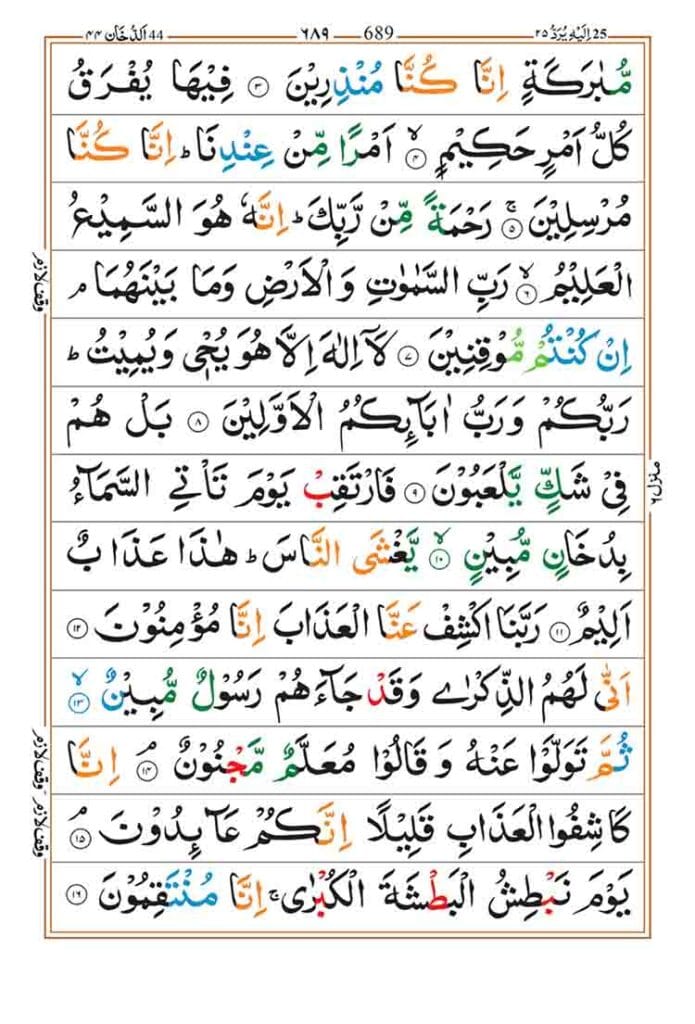 25 اِلَيْهِ يُرَدُّ ٢٥ 689 ٦٨٩ 44 اَلدُّخَان ٤٤
مُّبٰرَكَةٍ اِنَّا كُنَّا مُنْذِرِيْنَ ۝٣ فِيْهَا يُفْرَقُ
كُلُّ اَمْرٍ حَكِيْمٍ ۙ۝٤ اَمْرًا مِّنْ عِنْدِنَا ؕ اِنَّا كُنَّا
مُرْسِلِيْنَ ۚ۝٥ رَحْمَةً مِّنْ رَّبِّكَ ؕ اِنَّهٗ هُوَ السَّمِيْعُ
الْعَلِيْمُ ۙ۝٦ رَبِّ السَّمٰوٰتِ وَالْاَرْضِ وَمَا بَيْنَهُمَا ۘ
وقف لازم
اِنْ كُنْتُمْ مُّوْقِنِيْنَ ۝٧ لَاۤ اِلٰهَ اِلَّا هُوَ يُحْيٖ وَيُمِيْتُ ؕ
رَبُّكُمْ وَرَبُّ اٰبَآئِكُمُ الْاَوَّلِيْنَ ۝٨ بَلْ هُمْ
فِيْ شَكٍّ يَّلْعَبُوْنَ ۝٩ فَارْتَقِبْ يَوْمَ تَاْتِي السَّمَآءُ
منزل ٦
بِدُخَانٍ مُّبِيْنٍ ۙ۝١٠ يَّغْشَى النَّاسَ ؕ هٰذَا عَذَابٌ
اَلِيْمٌ ۝١١ رَبَّنَا اكْشِفْ عَنَّا الْعَذَابَ اِنَّا مُؤْمِنُوْنَ ۝١٢
اَنّٰى لَهُمُ الذِّكْرٰى وَقَدْ جَآءَهُمْ رَسُوْلٌ مُّبِيْنٌ ۙ۝١٣
ثُمَّ تَوَلَّوْا عَنْهُ وَقَالُوْا مُعَلَّمٌ مَّجْنُوْنٌ ۘ۝١٤ اِنَّا
وقف لازم - وقف لازم
كَاشِفُوا الْعَذَابِ قَلِيْلًا اِنَّكُمْ عَآئِدُوْنَ ۘ۝١٥
يَوْمَ نَبْطِشُ الْبَطْشَةَ الْكُبْرٰى ۚ اِنَّا مُنْتَقِمُوْنَ ۝١٦